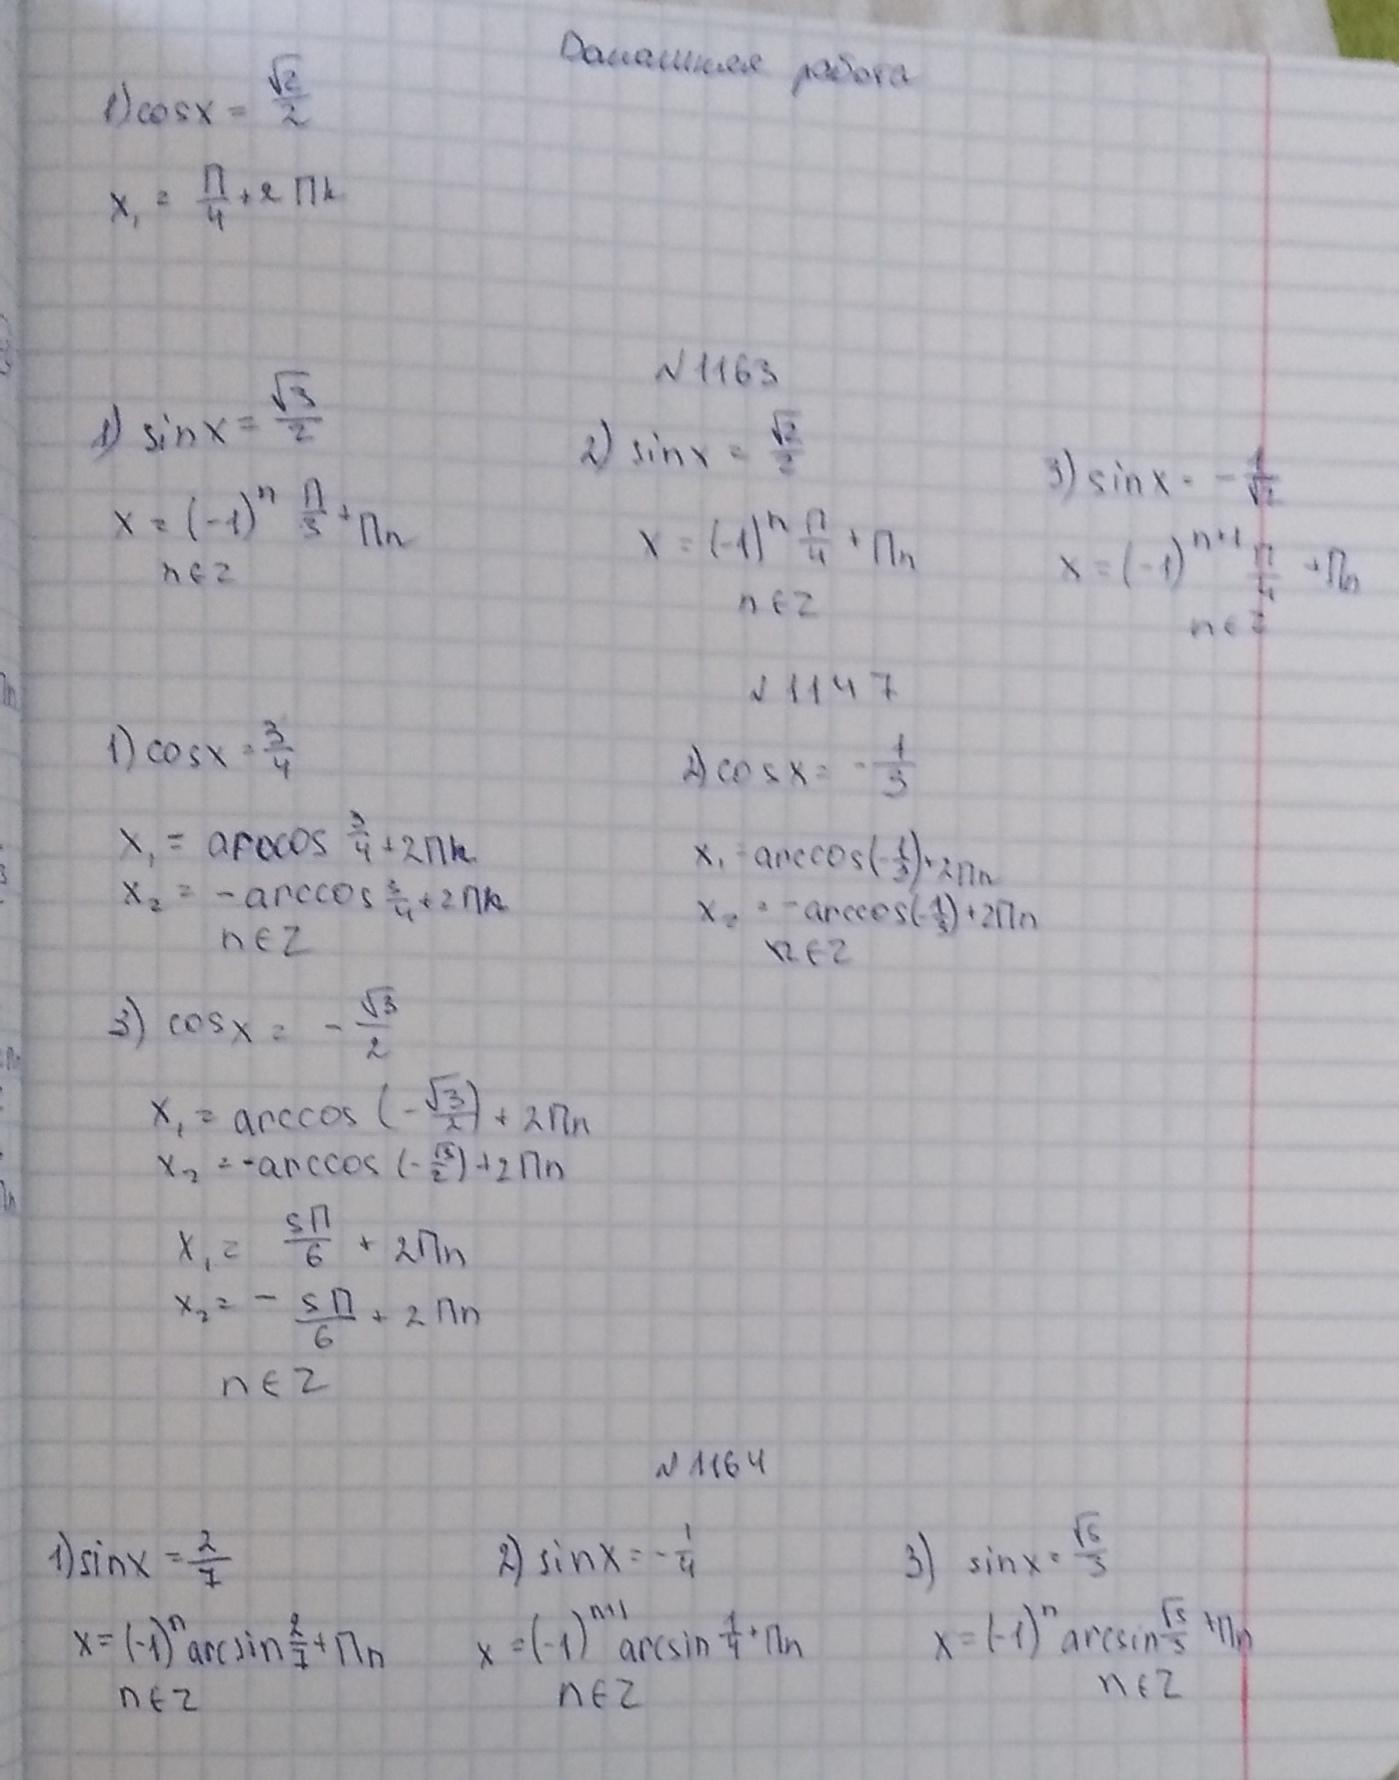 Домашняя работа
1) cos x = √2/2
x₁ = П/4 + 2Пk
№1163
1) sin x = √3/2
x = (-1)ⁿ П/3 + Пn
n ∈ Z
2) sin x = √2/2
x = (-1)ⁿ П/4 + Пn
n ∈ Z
3) sin x = -1/√2
x = (-1)ⁿ⁺¹ П/4 + Пn
n ∈ Z
№1147
1) cos x = 3/4
x₁ = arccos 3/4 + 2Пk
x₂ = -arccos 3/4 + 2Пk
n ∈ Z
2) cos x = -1/3
x₁ = arccos(-1/3) + 2Пn
x₂ = -arccos(-1/3) + 2Пn
n ∈ Z
3) cos x = -√3/2
x₁ = arccos (-√3/2) + 2Пn
x₂ = -arccos (-√3/2) + 2Пn
x₁ = 5П/6 + 2Пn
x₂ = -5П/6 + 2Пn
n ∈ Z
№1164
1) sin x = 2/7
x = (-1)ⁿ arcsin 2/7 + Пn
n ∈ Z
2) sin x = -1/4
x = (-1)ⁿ⁺¹ arcsin 1/4 + Пn
n ∈ Z
3) sin x = √5/3
x = (-1)ⁿ arcsin √5/3 + Пn
n ∈ Z